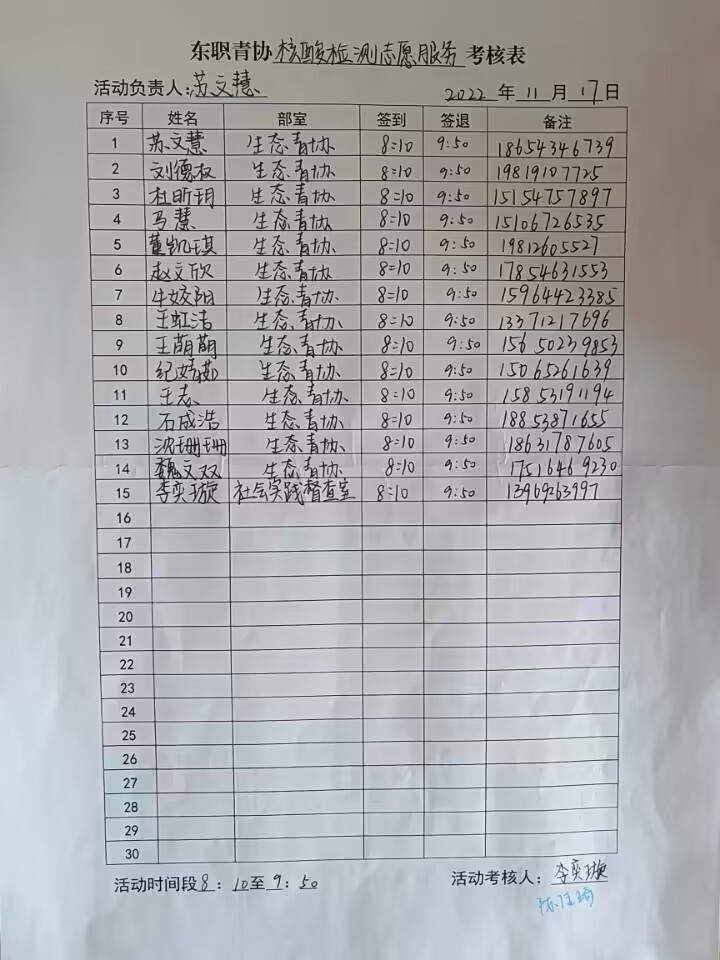 东职青协核酸检测志愿服务考核表
活动负责人:苏文慧 2022 年 11 月 17 日
序号 姓名 部室 签到 签退 备注
1 苏文慧 生态青协 8:10 9:50 18654346739
2 刘德权 生态青协 8:10 9:50 19819107725
3 杜昕玥 生态青协 8:10 9:50 15154757897
4 马慧 生态青协 8:10 9:50 15106726535
5 董凯琪 生态青协 8:10 9:50 19812605527
6 赵文欣 生态青协 8:10 9:50 17854631553
7 牛姣阳 生态青协 8:10 9:50 15964423385
8 王虹洁 生态青协 8:10 9:50 13371217696
9 王萌萌 生态青协 8:10 9:50 15650239853
10 纪婧茹 生态青协 8:10 9:50 15065261639
11 王志 生态青协 8:10 9:50 15853191194
12 石成浩 生态青协 8:10 9:50 18853871655
13 沈珊珊 生态青协 8:10 9:50 18631787605
14 魏文双 生态青协 8:10 9:50 17516469230
15 李奕璇 社会实践督查室 8:10 9:50 13969263997
16
17
18
19
20
21
22
23
24
25
26
27
28
29
30
活动时间段 8:10至 9:50 活动考核人:李奕璇